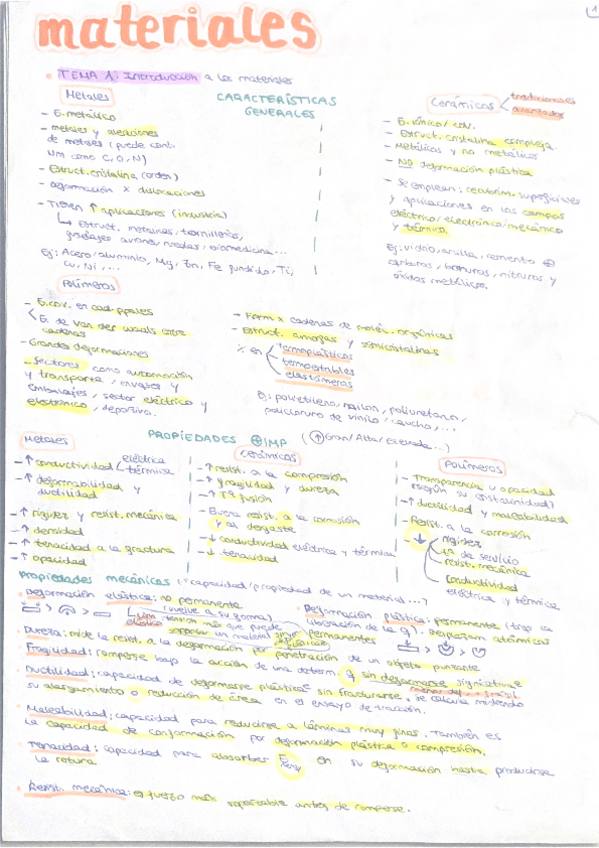 1
materiales
TEMA 1: Introducción a los materiales
CARACTERÍSTICAS
GENERALES
Metales
- E. metálico
- metales y aleaciones
de metales (puede cont.
NM como C, O, N)
- Estruct. cristalina (orden)
- deformación x dislocaciones
- Tienen ↑ aplicaciones (industria)
↳ Estruct. metálicas, tornillería,
aviones, ruedas, biomedicina...
Ej: Acero, aluminio, Mg, Zn, Fe fundido, Ti,
Cu, Ni, ...
Cerámicos
tradicionales
avanzados
- E. iónico / cov.
- Estruct. cristalina compleja
- Metálicos y no metálicos
- NO deformación plástica
- Se emplean: recubrim. superficiales
y aplicaciones en los campos
eléctrico, electrónico, mecánico
y térmico.
Ej: vidrio, arcilla, cemento ⊕
carburos, boruros, nitruros y
óxidos metálicos.
Polímeros
- E. cov. en cad. ppales
E. de van der Waals entre
cadenas
- Grandes deformaciones
- Sectores como automoción
y transporte, envases y
embalajes, sector eléctrico y
electrónico, deportivo.
- Form x cadenas de moléc. orgánicas
- Estruct. amorfas y semicristalinas
en
termoplásticos
termoestables
elastómeros
Ej: polietileno, nailon, poliuretano,
policloruro de vinilo, caucho, ...
PROPIEDADES ⊕ IMP (↑ Gran/Alta/Elevada...)
Metales
- ↑ conductividad eléctrica
térmica
- ↑ deformabilidad y
ductilidad
- ↑ rigidez y resist. mecánica
- ↑ densidad
- ↑ tenacidad a la fractura
- ↑ opacidad
Cerámicos
- ↑ resist. a la compresión
- ↑ fragilidad y dureza
- ↑ Tª fusión
- Buena resist. a la corrosión
y al desgaste
- ↓ conductividad eléctrica y térmica
- ↓ tenacidad
Polímeros
- Transparencia u opacidad
(según su cristalinidad)
- ↑ ductilidad y maleabilidad
- Resist. a la corrosión
- ↓
rigidez
Tª de servicio
resist. mecánica
conductividad
eléctrica y térmica
Propiedades mecánicas (¿capacidad/propiedad de un material...?)
- Deformación elástica: no permanente
(vuelve a su forma)
Lím. elástico
tensión máx que puede
soportar un material sin
- Deformación plástica: permanente (tras la
liberación de la σ). Desplazam. atómicos
permanentes
- Dureza: mide la resist. a la deformación por penetración de un objeto punzante
- Fragilidad: romperse bajo la acción de una determ. σ sin deformarse
- Ductilidad: capacidad de deformarse plástica¨ sin fracturarse. Se calcula midiendo
su alargamiento o reducción de área en el ensayo de tracción.
- Maleabilidad: capacidad para reducirse a láminas muy finas. También es
la capacidad de conformación por deformación plástica a compresión.
- Tenacidad: capacidad para absorber en su deformación hasta producirse
la rotura
- Resist. mecánica: esfuerzo máx soportable antes de romperse.